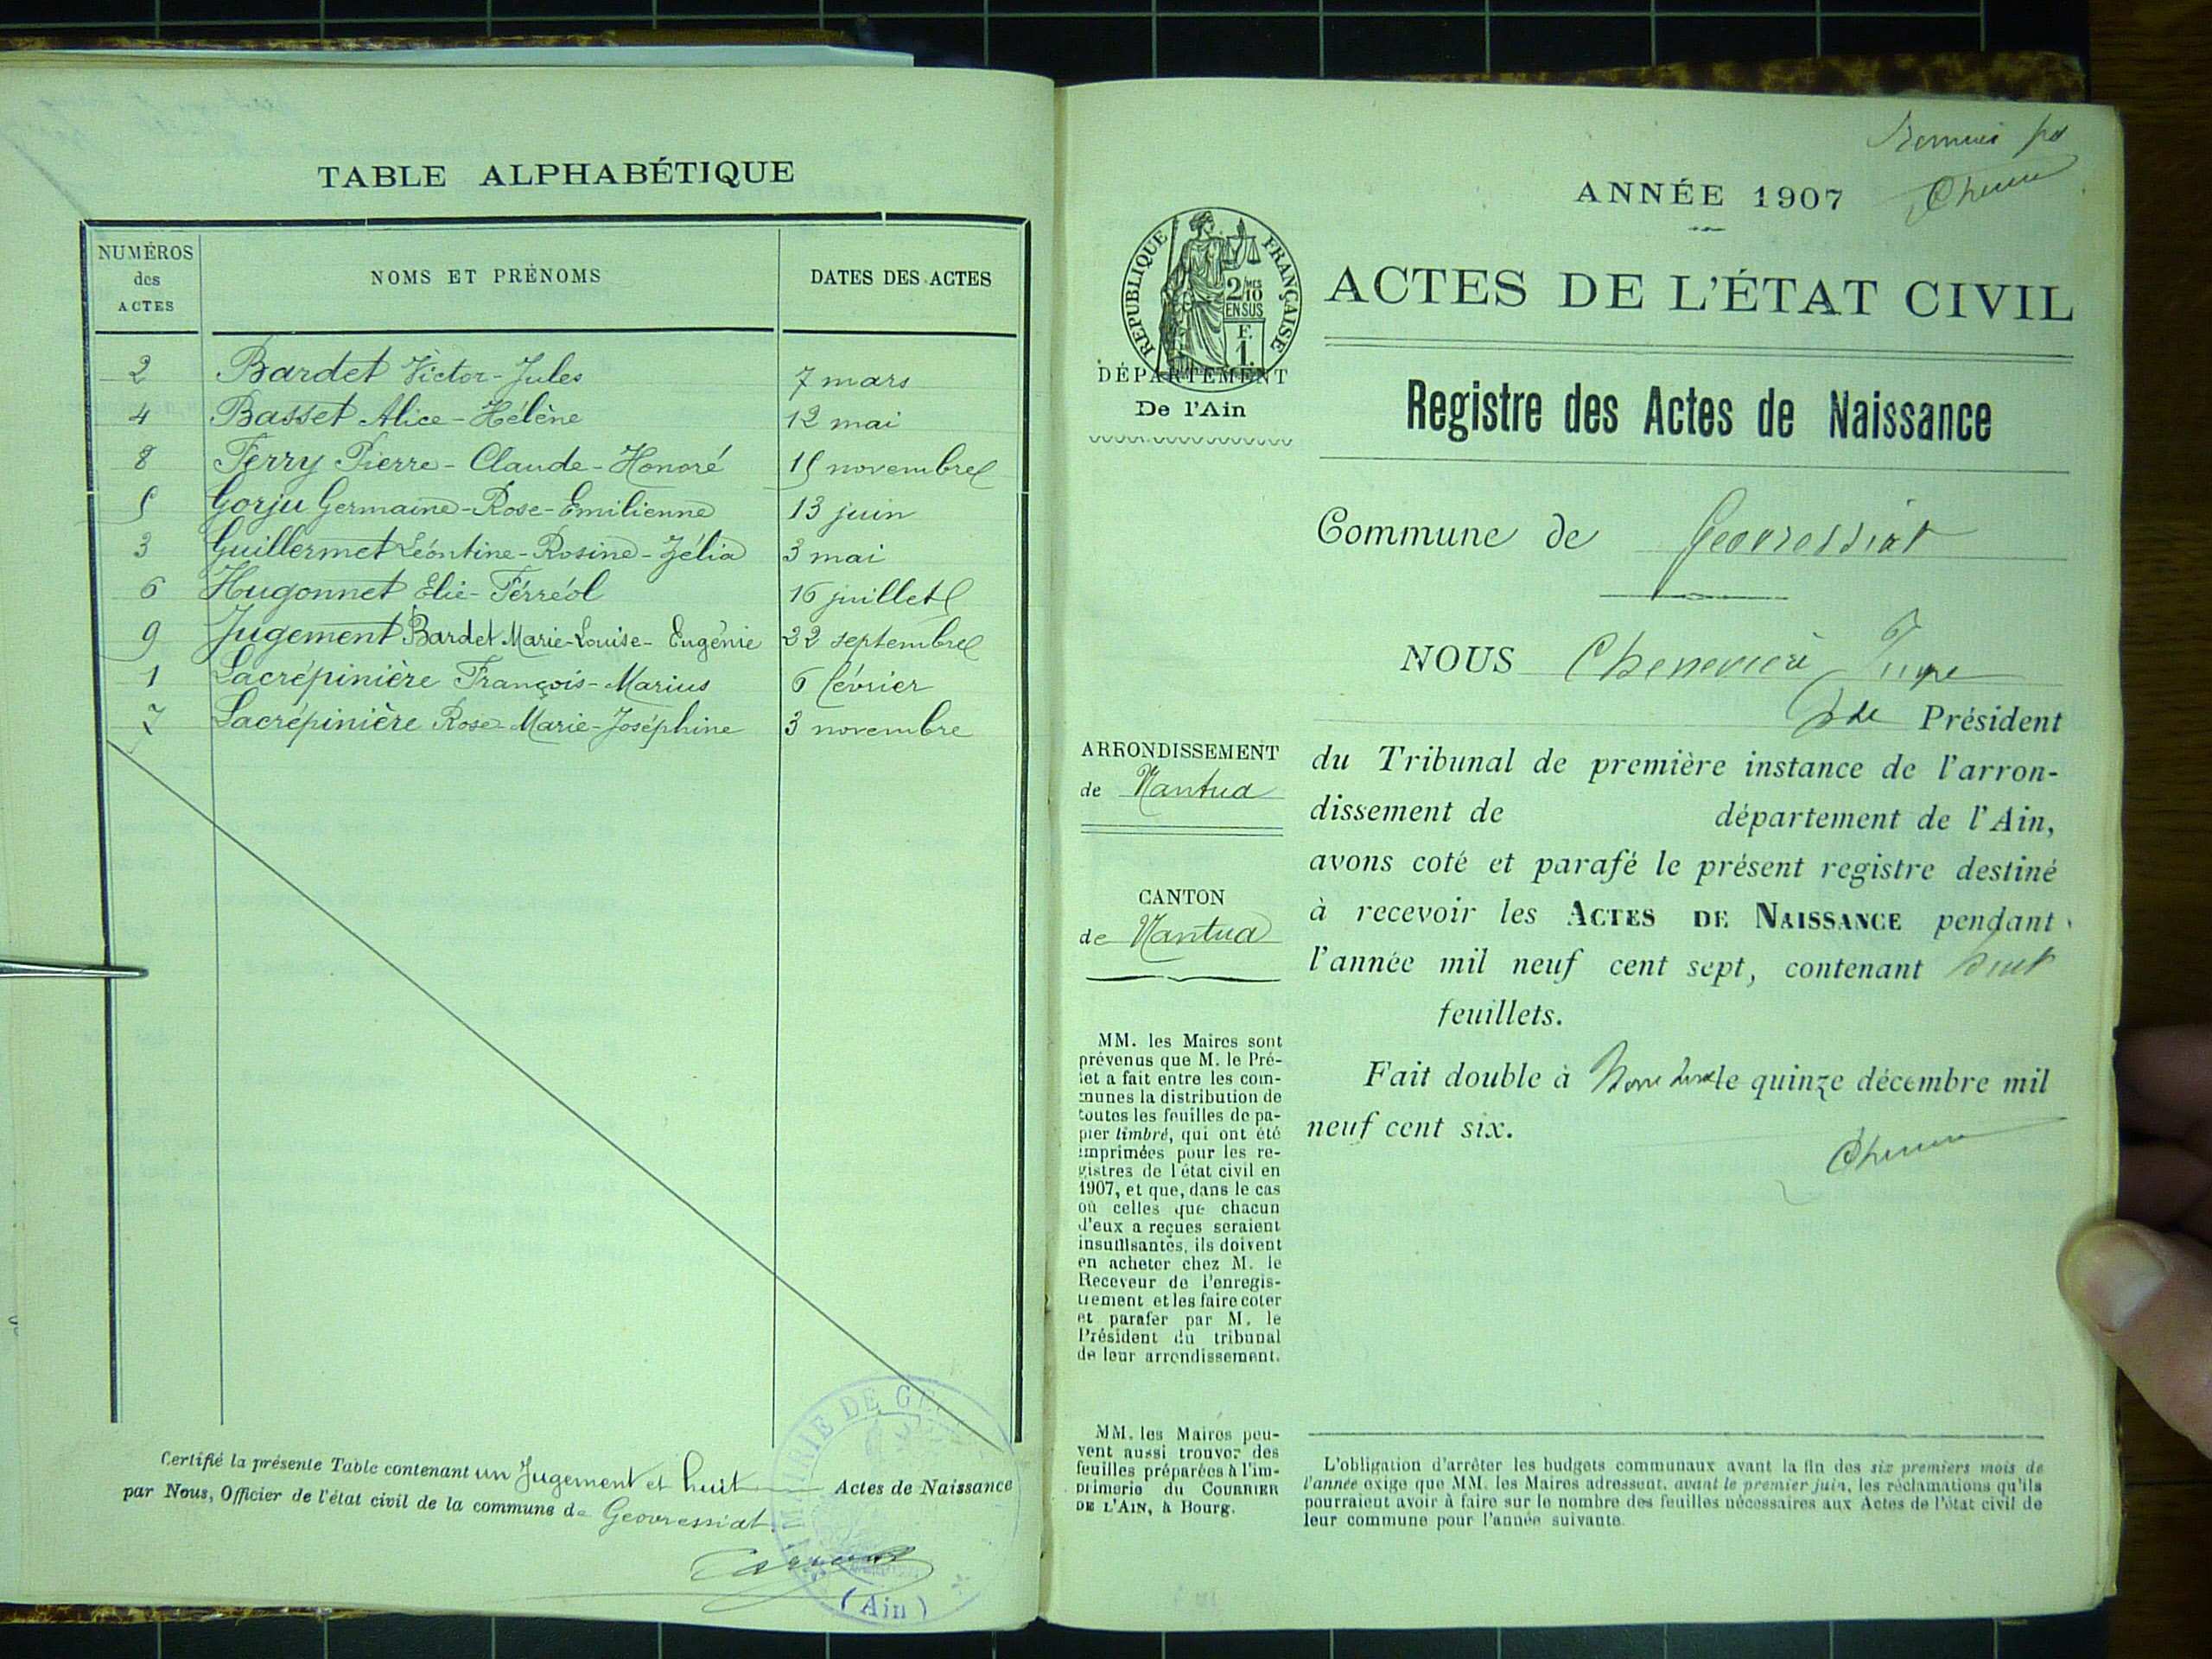 TABLE ALPHABÉTIQUE
NUMÉROS des ACTES
NOMS ET PRÉNOMS
DATES DES ACTES
2 Bardet Victor-Jules 7 mars
4 Basset Alice-Hélène 12 mai
8 Ferry Pierre-Claude-Honoré 15 novembre
5 Gorju Germaine-Rose-Emilienne 13 juin
3 Guillermet Léontine-Rosine-Zélia 3 mai
6 Hugonnet Elie-Férréol 16 juillet
9 Jugement Bardet Marie-Louise-Eugénie 22 septembre
1 Lacrépinière François-Marius 6 février
7 Lacrépinière Rose-Marie-Joséphine 3 novembre
Certifié la présente Table contenant un Jugement et huit Actes de Naissance
par Nous, Officier de l'état civil de la commune de Geovressiat
MAIRIE DE GE
(Ain)
ANNÉE 1907
RÉPUBLIQUE FRANÇAISE
2/10 MES
EN SUS
F.
1.
ACTES DE L'ÉTAT CIVIL
DÉPARTEMENT
De l'Ain
Registre des Actes de Naissance
Commune de Geovressiat
NOUS
Président
ARRONDISSEMENT
de Nantua
du Tribunal de première instance de l'arron-
dissement de département de l'Ain,
avons coté et parafé le présent registre destiné
à recevoir les ACTES DE NAISSANCE pendant
l'année mil neuf cent sept, contenant
feuillets.
Fait double à le quinze décembre mil
neuf cent six.
CANTON
de Nantua
MM. les Maires sont
prévenus que M. le Pré-
fet a fait entre les com-
munes la distribution de
toutes les feuilles de pa-
pier timbré, qui ont été
imprimées pour les re-
gistres de l'état civil en
1907, et que, dans le cas
où celles que chacun
d'eux a reçues seraient
insuffisantes, ils doivent
en acheter chez M. le
Receveur de l'enregis-
trement et les faire coter
et parafer par M. le
Président du tribunal
de leur arrondissement.
MM. les Maires peu-
vent aussi trouver des
feuilles préparées à l'im-
primerie du COURRIER
DE L'AIN, à Bourg.
L'obligation d'arrêter les budgets communaux avant la fin des six premiers mois de
l'année exige que MM. les Maires adressent, avant le premier juin, les réclamations qu'ils
pourraient avoir à faire sur le nombre des feuilles nécessaires aux Actes de l'état civil de
leur commune pour l'année suivante.